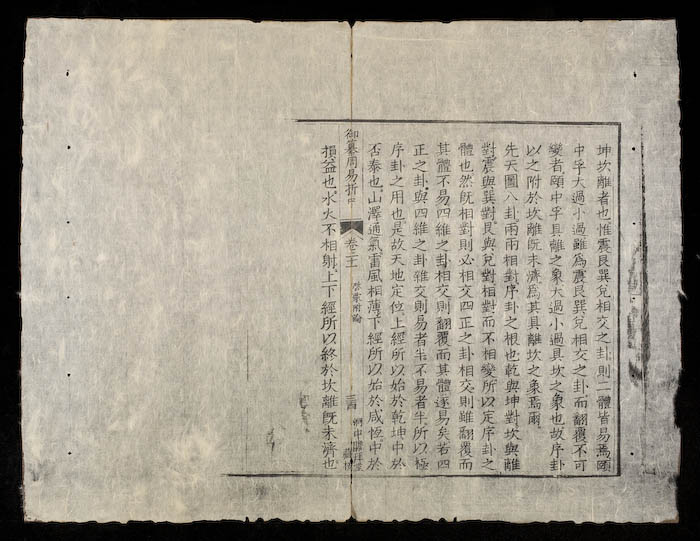 坤坎離者也惟震艮巽兌相交之卦則二體皆易焉頤
中孚大過小過雖為震艮巽兌相交之卦而翻覆不可
變者頤中孚具離之象大過小過具坎之象也故序卦
以之附於坎離既未濟為其具離坎之象焉爾
先天圖八卦兩兩相對序卦之根也乾與坤對坎與離
對震與巽對艮與兌對相對而不相變所以定序卦之
體也然既相對則必相交四正之卦相交則雖翻覆而
其體不易四維之卦相交則翻覆而其體逐易矣若四
正之卦與四維之卦雜交則易者半不易者半所以極
序卦之用也是故天地定位上經所以始於乾坤中於
否泰也山澤通氣雷風相薄下經所以始於咸恆中於
損益也水火不相射上下經所以終於坎離既未濟也
御纂周易折中
卷二十
啓蒙附論